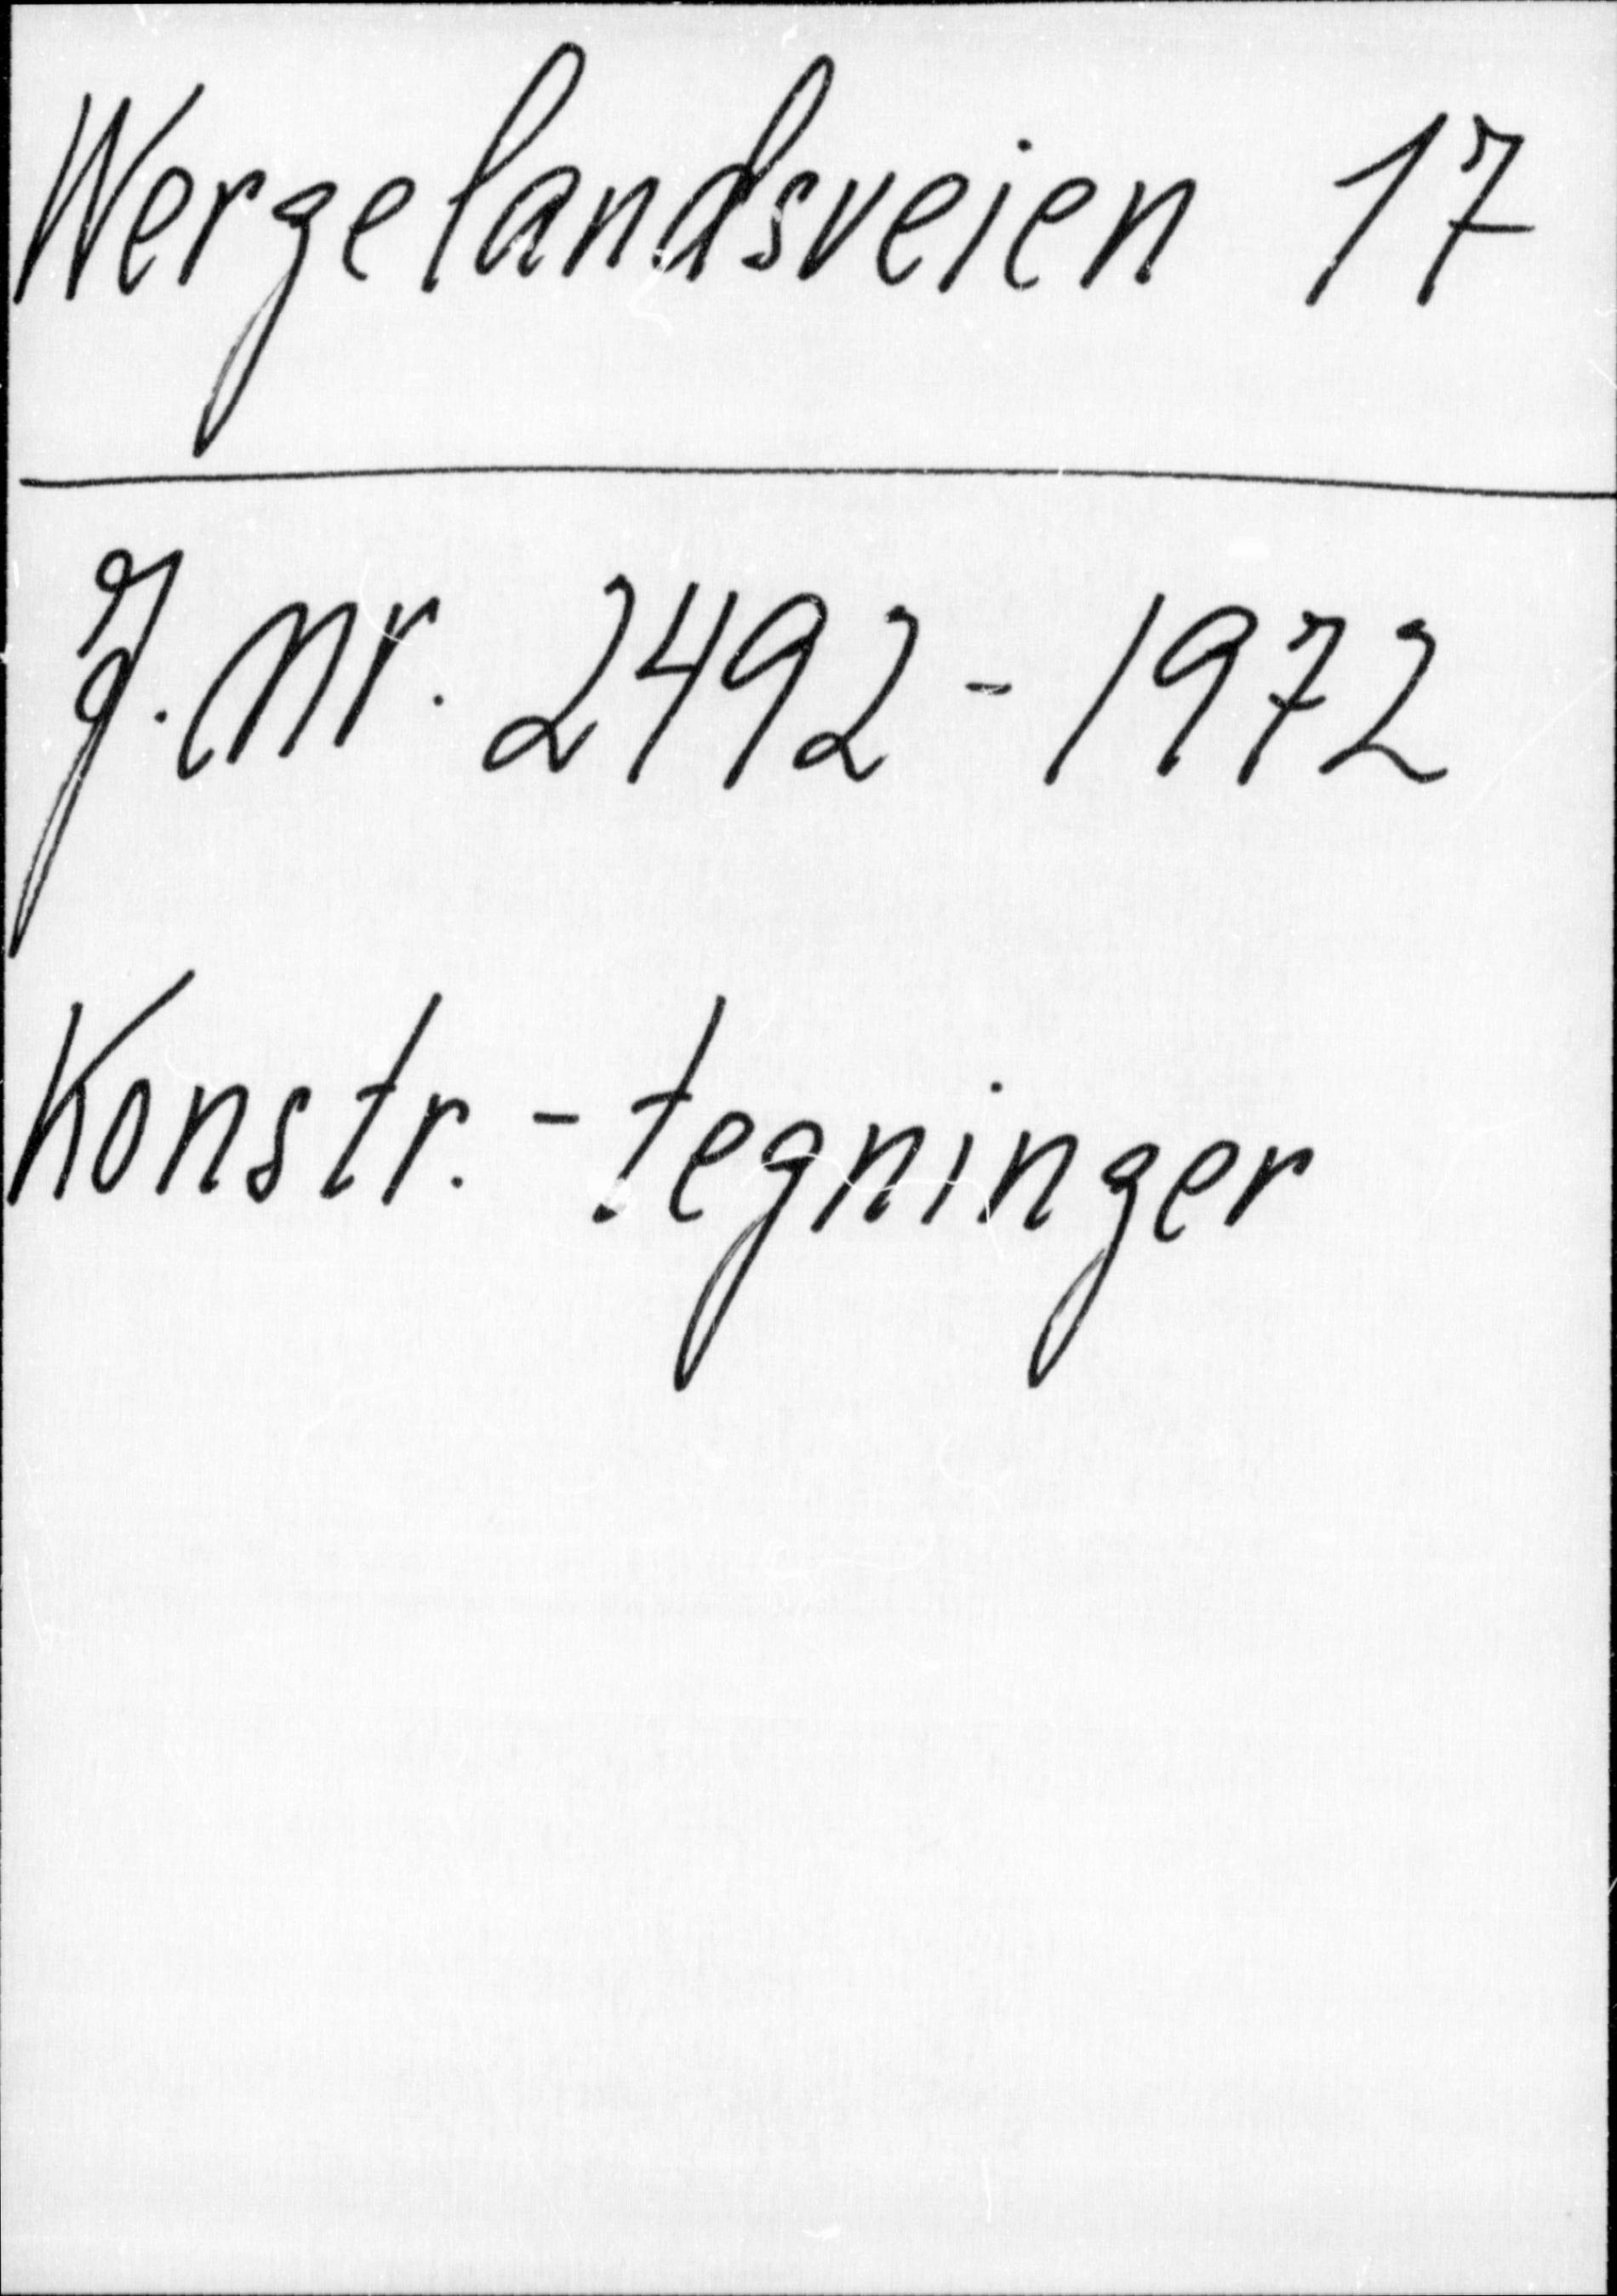 Wergelandsveien 17
J. nr. 2492 - 1972
Konstr. - tegninger